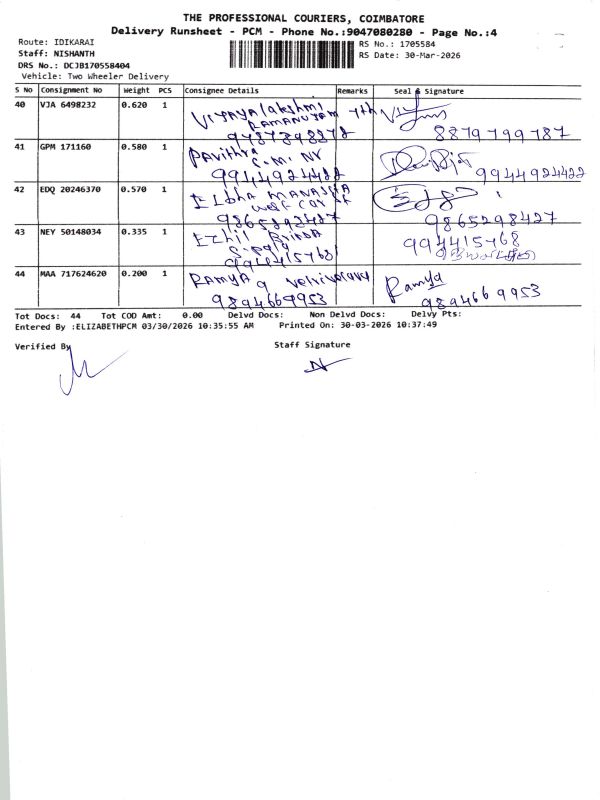 THE PROFESSIONAL COURIERS, COIMBATORE
Delivery Runsheet - PCM - Phone No.:9047080280 - Page No.:4
Route: IDIKARAI
RS No.: 1705584
Staff: NISHANTH
RS Date: 30-Mar-2026
DRS No.: DCJB170558404
Vehicle: Two Wheeler Delivery
S No Consignment No Weight PCS Consignee Details Remarks Seal & Signature
40 VJA 6498232 0.620 1 Vijayalakshmi
RAMANUJAM 7th
8879799787
41 GPM 171160 0.580 1 Pavithra
C.M. NY
9944924422 9944924422
42 EDQ 20246370 0.570 1 MANASFA
9865298427
43 NEY 50148034 0.335 1 Ezhil
9944157681 994415768
44 MAA 717624620 0.200 1 RAMYA Ramya
9894669953 9894669953
Tot Docs: 44 Tot COD Amt: 0.00 Delvd Docs: Non Delvd Docs: Delvy Pts:
Entered By :ELIZABETHPCM 03/30/2026 10:35:55 AM Printed On: 30-03-2026 10:37:49
Verified By Staff Signature